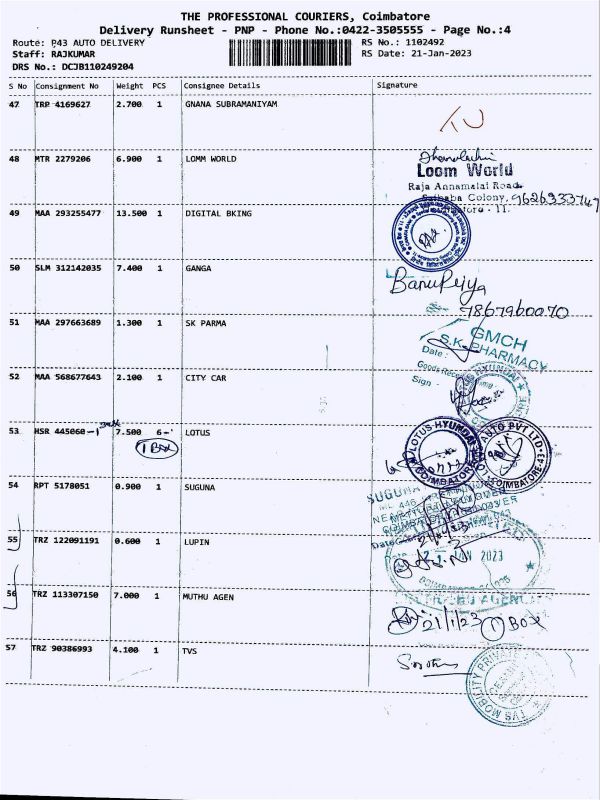 THE PROFESSIONAL COURIERS, Coimbatore
Delivery Runsheet - PNP - Phone No.:0422-3505555 - Page No.:4
Route: P43 AUTO DELIVERY RS No.: 1102492
Staff: RAJKUMAR RS Date: 21-Jan-2023
DRS No.: DCJB110249204
S No Consignment No Weight PCS Consignee Details Signature
47 TRP 4169627 2.700 1 GNANA SUBRAMANIYAM
48 MTR 2279206 6.900 1 LOMM WORLD
Loom World
Raja Annamalai Road
Saibaba Colony, 9626333747
49 MAA 293255477 13.500 1 DIGITAL BKING
50 SLM 312142035 7.400 1 GANGA
7867960070
51 MAA 297663689 1.300 1 SK PARMA
GMCH
S.K. PHARMACY
Date :
Sign
52 MAA 568677643 2.100 1 CITY CAR
HYUNDAI
53 HSR 445060-1 7.500 6 LOTUS
1 Box
LOTUS HYUNDAI COIMBATORE
AUTO PVT LTD COIMBATORE-43
54 RPT 5178051 0.900 1 SUGUNA
SUGUNA
55 TRZ 122091191 0.600 1 LUPIN
2023
56 TRZ 113307150 7.000 1 MUTHU AGEN
AGENC
21/1/23 1 BOX
57 TRZ 90386993 4.100 1 TVS
TVS MOBILITY PRIVATE